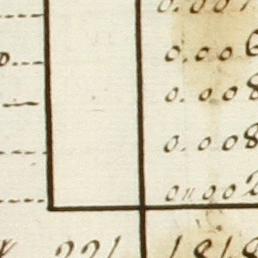 0.00
0.006
0.008
0.008
0"002
221 1818